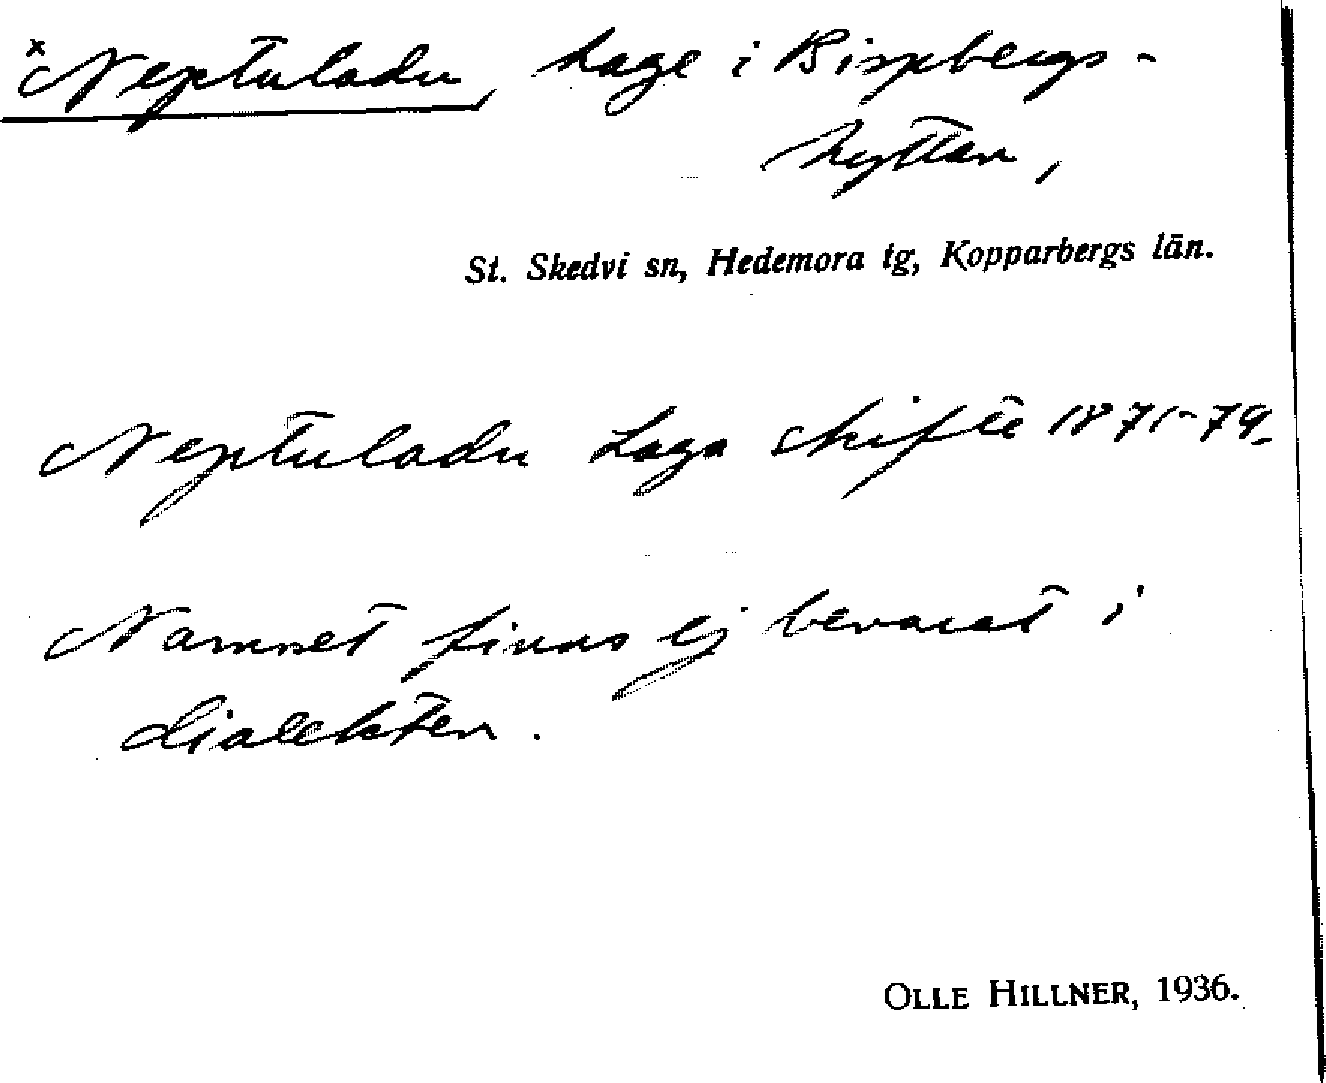 x Neptuladu, hage i Bispbergs-
hyttan,
St. Skedvi sn, Hedemora tg, Kopparbergs län.
Neptuladu Laga skifte 1871-79.
Namnet finns ej bevarat i
dialekten.
OLLE HILLNER, 1936.